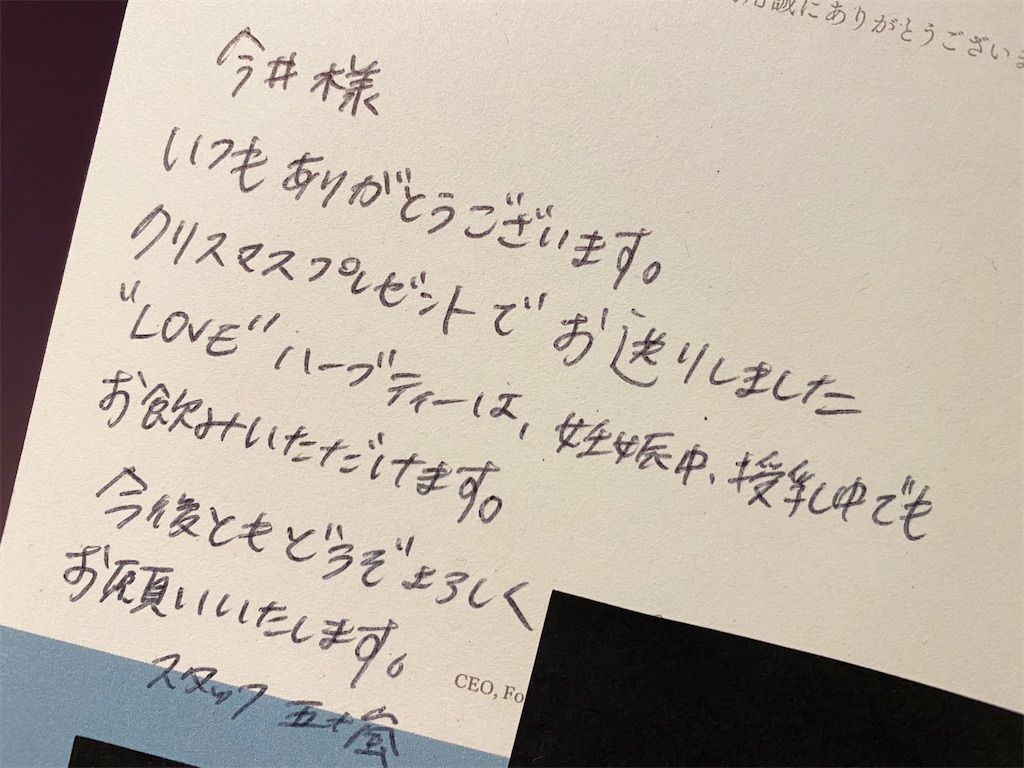 誠にありがとうございま
今井様
いつもありがとうございます。
クリスマスプレゼントでお送りしました
"LOVE"ハーブティーは、妊娠中、授乳中でも
お飲みいただけます。
今後ともどうぞよろしく
お願いいたします。
CEO, Fo
スタッフ 五十嵐